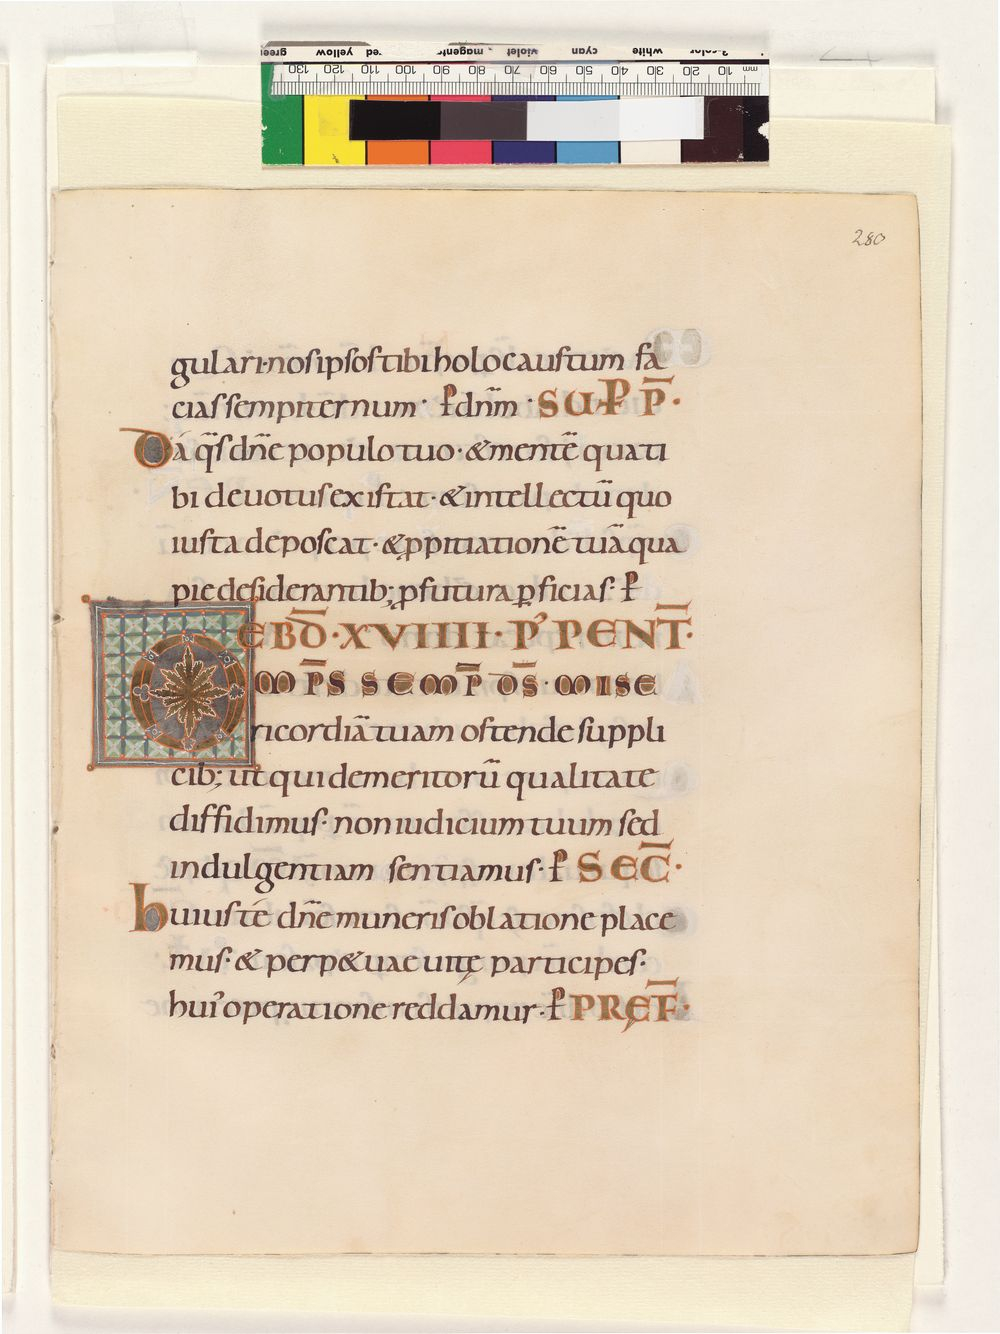 280
gulari·nosipsostibiholocaustum fa
cias sempiternum· ꝑ dnm̄· SUP̄ P̄·
Da q̄s dn̄e populo tuo·&mentē quati
bi deuotus existat·&intellectū quo
iusta deposcat·&ppitiationē tuā qua
pie desiderantib; ꝓfutura ꝑficias· ꝑ
EBD̄·XVIIII·P' PENT̄·
OMP̄S SEMP̄ D̄S·MISE
ricordiā tuam ostende suppli
cib; ut qui de meritorū qualitate
diffidimus· non iudicium tuum sed
indulgentiam sentiamus· ꝑ SEC̄·
huiuste dn̄e muneris oblatione place
mus·& perp&uae uitę participes·
hui' operatione reddamur· ꝑ PRĘF̄·